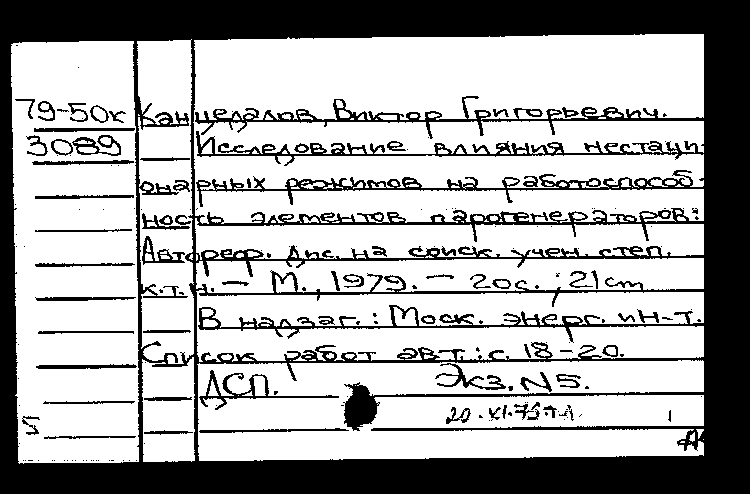 79-50к Канцедалов, Виктор Григорьевич.
3089 Исследование влияния нестаци-
онарных режимов на работоспособ-
ность элементов парогенераторов:
Автореф. дис. на соиск. учен. степ.
к.т.н. — М., 1979. — 20с. ; 21cm
В надзаг.: Моск. энерг. ин-т.
Список работ авт.: с. 18-20.
ДСП. Экз. N5.
20.XI.79